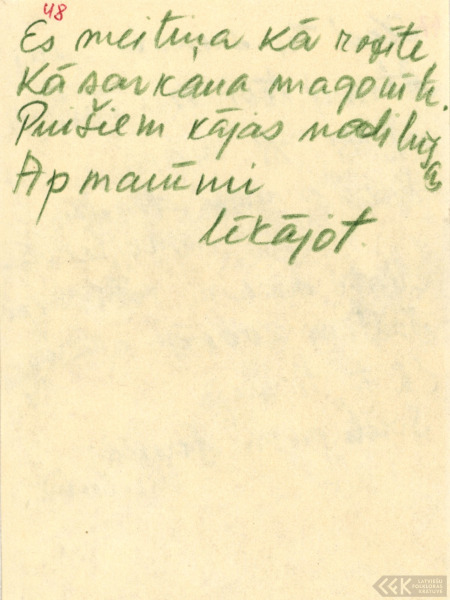 48
Es meitiņa kā rozīte,
Kā sarkana magonīte.
Puišiem kājas nodilušas
Ap manīmi
lēkājot.
LATVIEŠU
FOLKLORAS
KRĀTUVE